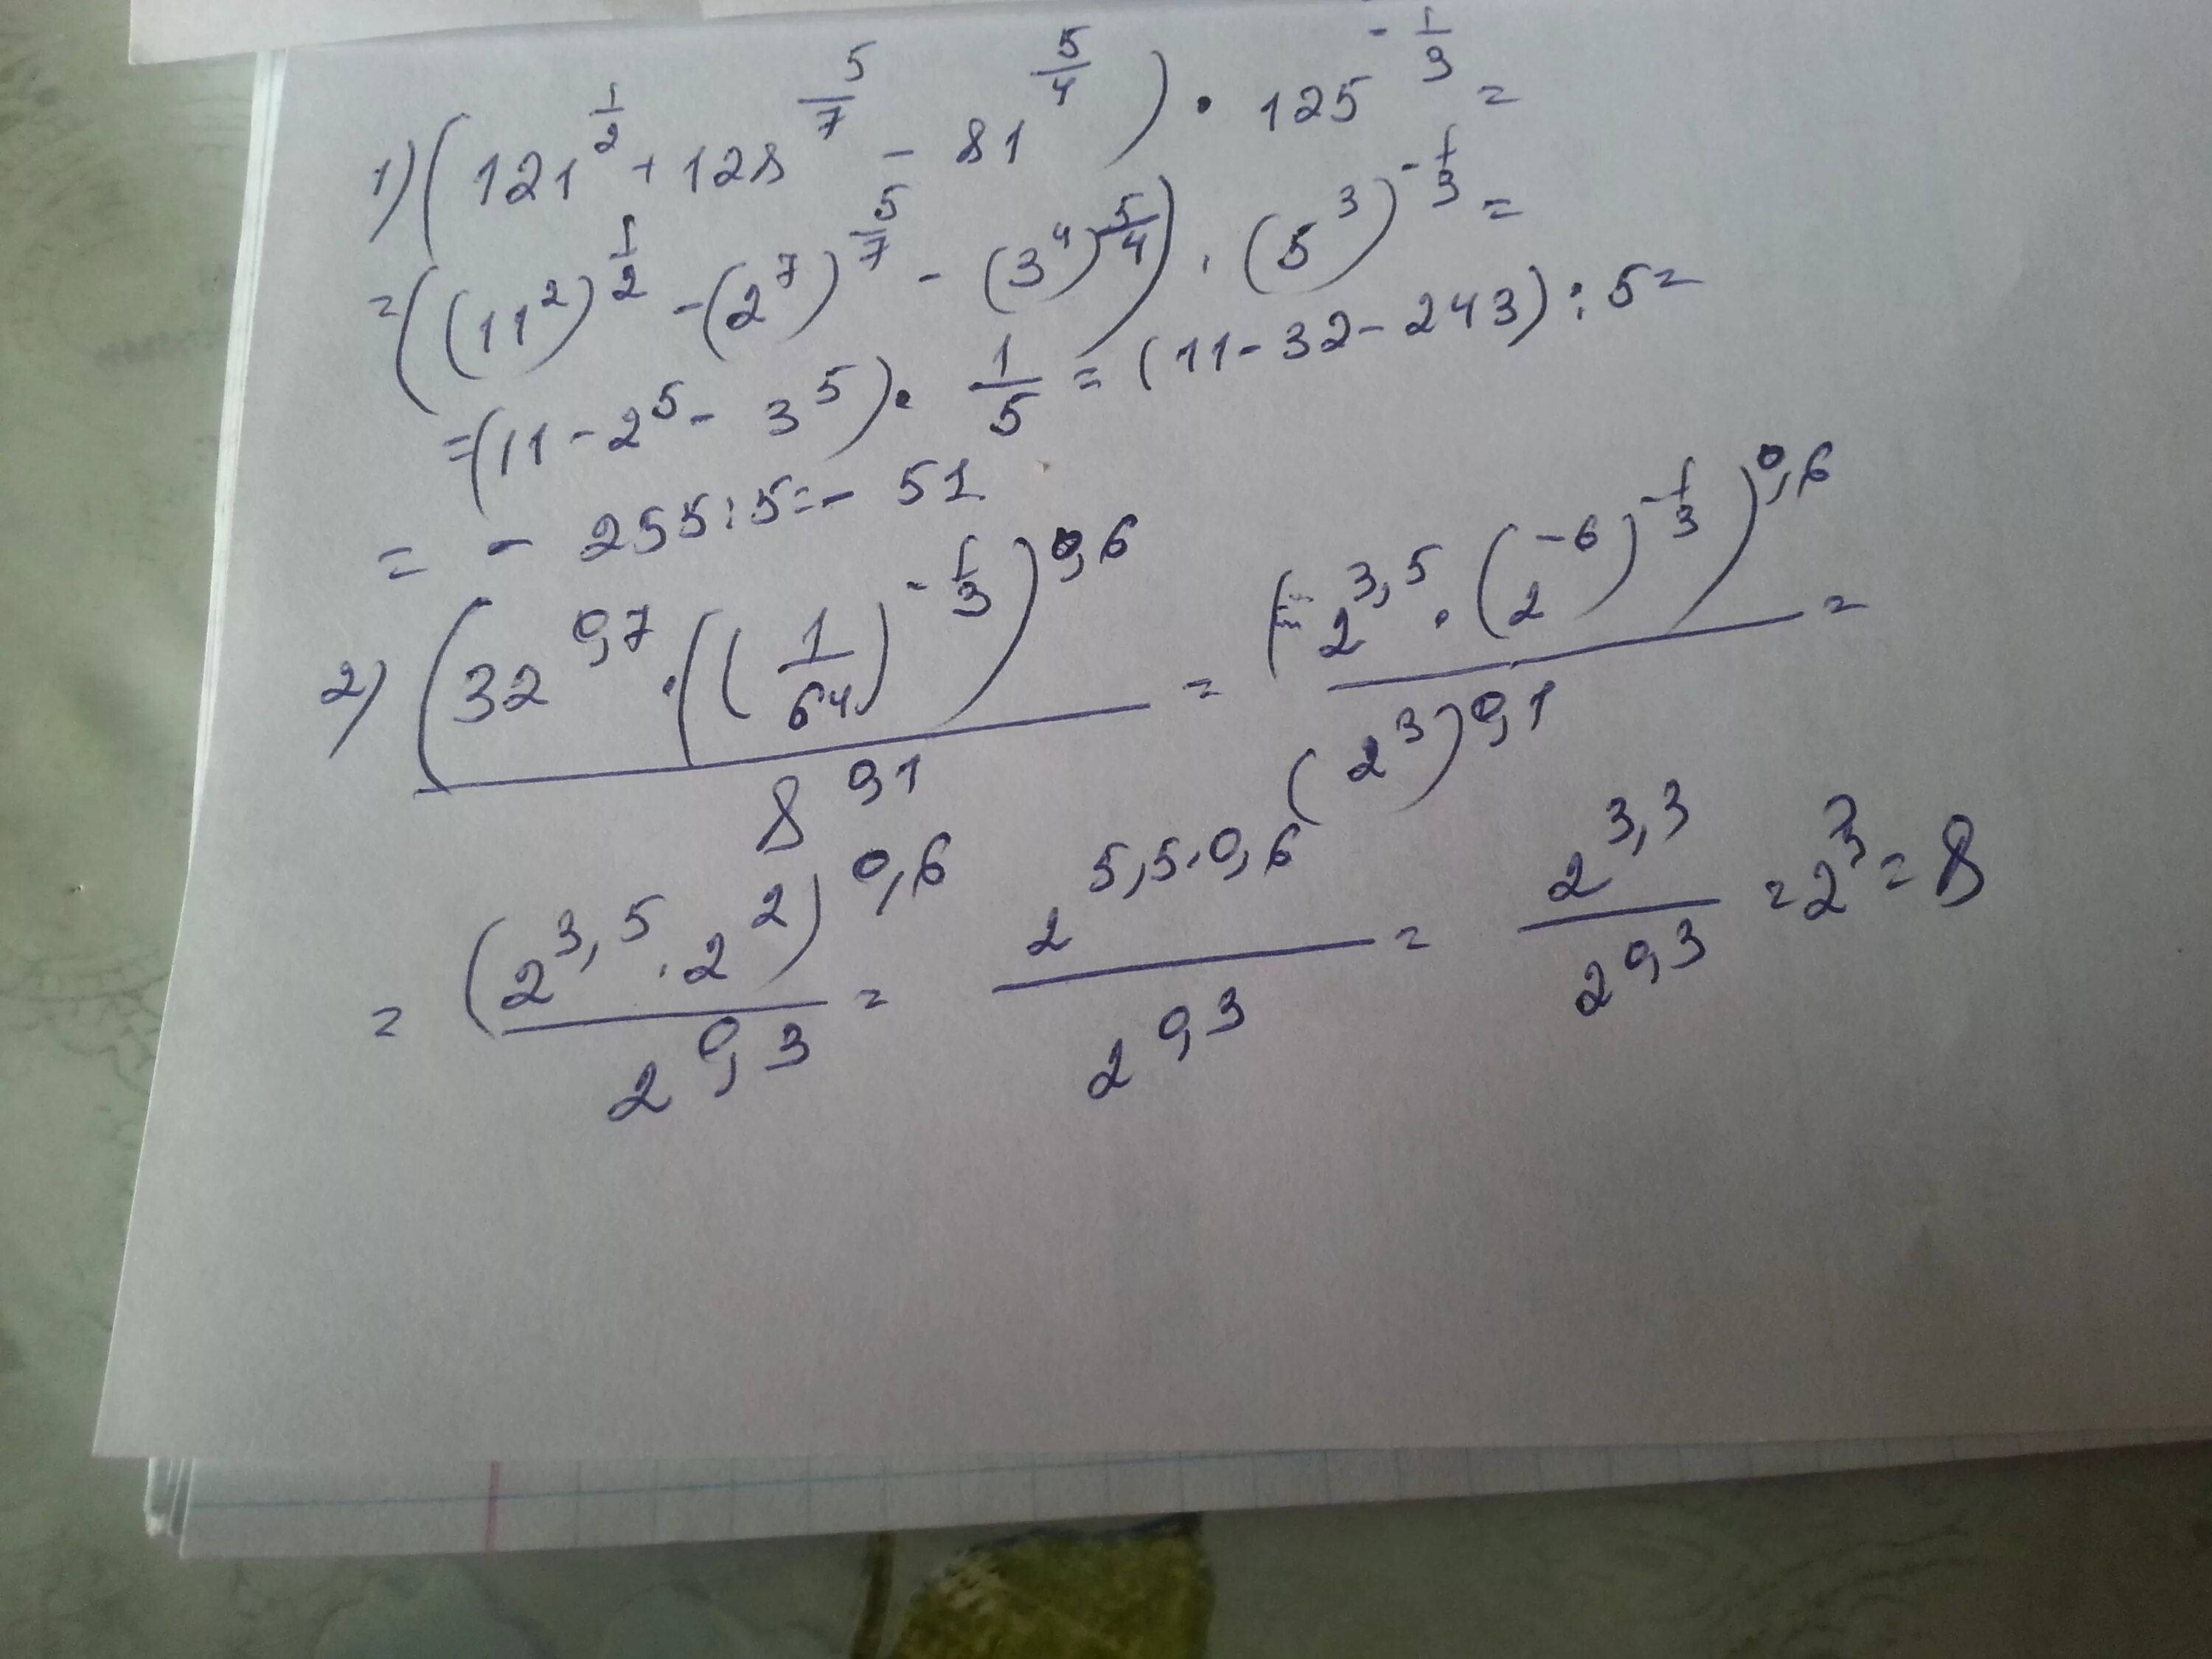 1) (121^(1/2) + 128^(5/7) - 81^(5/4)) · 125^(-1/3) =
= ((11^2)^(1/2) - (2^7)^(5/7) - (3^4)^(5/4)) · (5^3)^(-1/3) =
= (11 - 2^5 - 3^5) · 1/5 = (11 - 32 - 243) : 5 =
= - 255 : 5 = - 51
2) (32^0,7 · ((1/64)^(-1/3))^0,6 / 8^0,1 = (2^3,5 · (2^-6)^(-1/3))^0,6 / (2^3)^0,1 =
= (2^3,5 · 2^2)^0,6 / 2^0,3 = 2^5,5·0,6 / 2^0,3 = 2^3,3 / 2^0,3 = 2^3 = 8